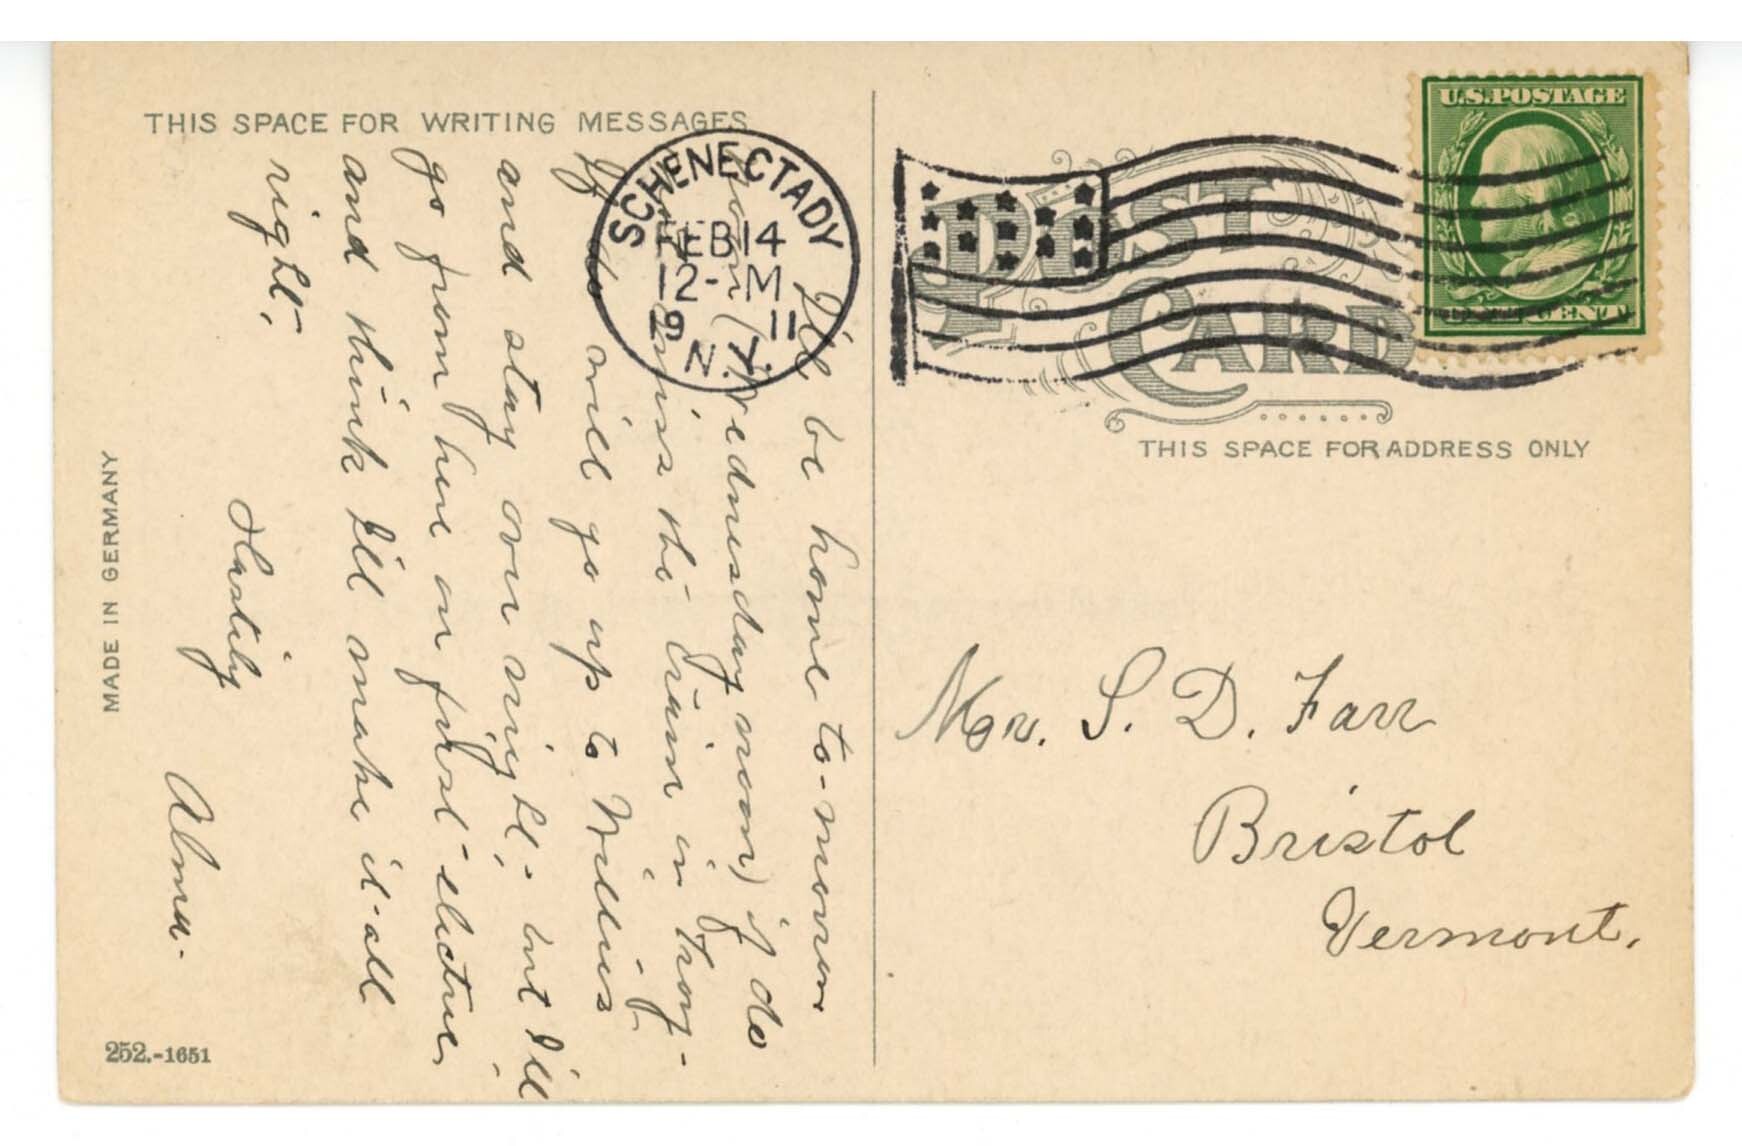 THIS SPACE FOR WRITING MESSAGES
I'll be home to-morrow
noon (Wednesday noon) if do
miss the train in Troy-
If do will go up to Willies
and stay over night,- but I'll
go from here on first electric
and think I'll make it all
right.
Hastily
Alma.
MADE IN GERMANY
252.-1651
SCHENECTADY
FEB 14
12-M
19 11
N.Y.
U.S. POSTAGE
ONE CENT
POST
CARD
THIS SPACE FOR ADDRESS ONLY
Mr. S. D. Farr
Bristol
Vermont.